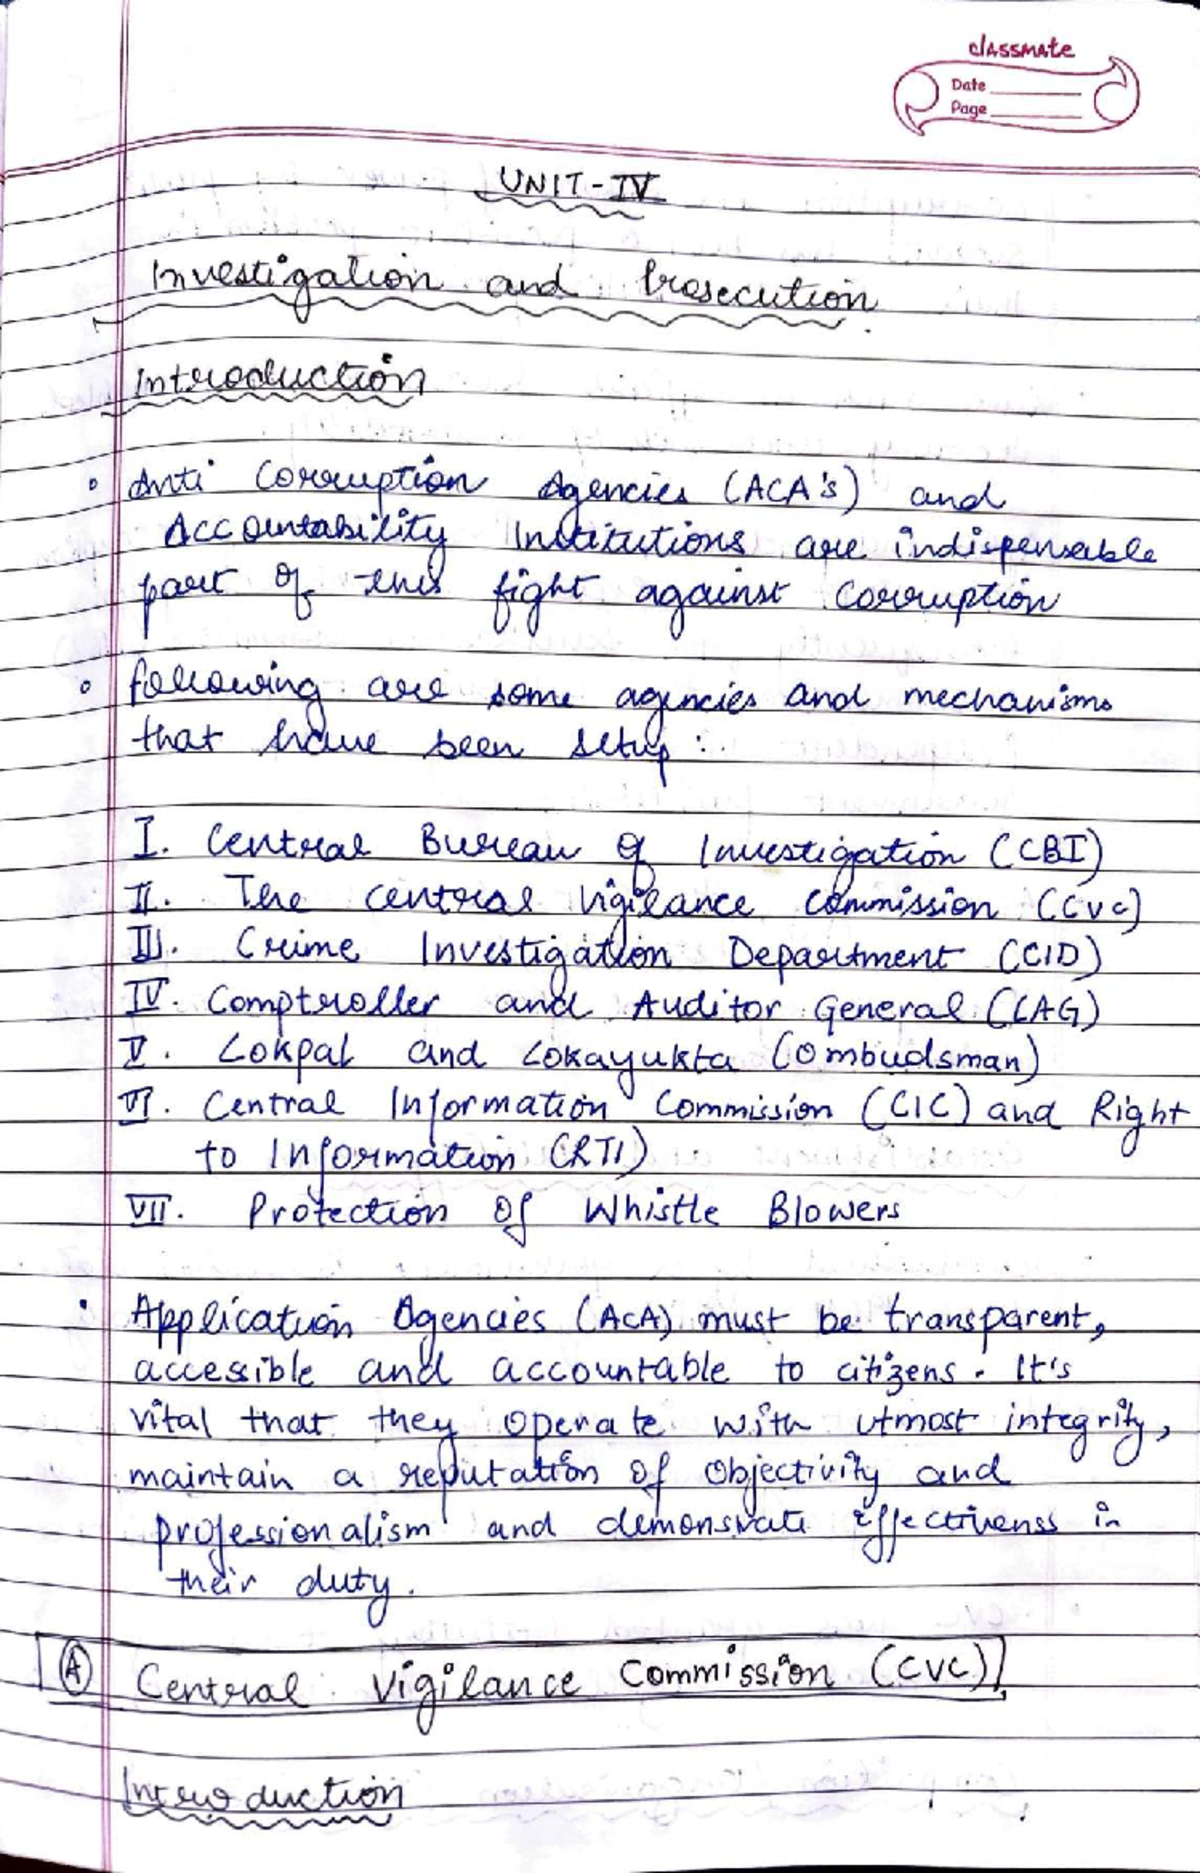 classmate
Date
Page
UNIT-IV
Investigation and Prosecution
Introduction
Anti Corruption Agencies (ACA's) and
Accountability Institutions are indispensable
part of this fight against Corruption
following are some agencies and mechanisms
that have been setup:
I. Central Bureau of Investigation (CBI)
II. The central Vigilance Commission (CVC)
III. Crime Investigation Department (CID)
IV. Comptroller and Auditor General (CAG)
V. Lokpal and Lokayukta (Ombudsman)
VI. Central Information Commission (CIC) and Right
to Information (RTI)
VII. Protection of Whistle Blowers
Application Agencies (ACA) must be transparent,
accessible and accountable to citizens. It's
vital that they operate with utmost integrity,
maintain a reputation of objectivity and
professionalism and demonsrate effectivenss in
their duty.
(A) Central Vigilance Commission (CVC)
Introduction